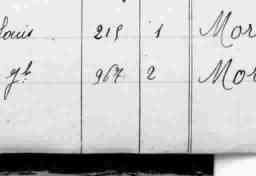 Louis 215 1 Mor
gb 967 2 Mor